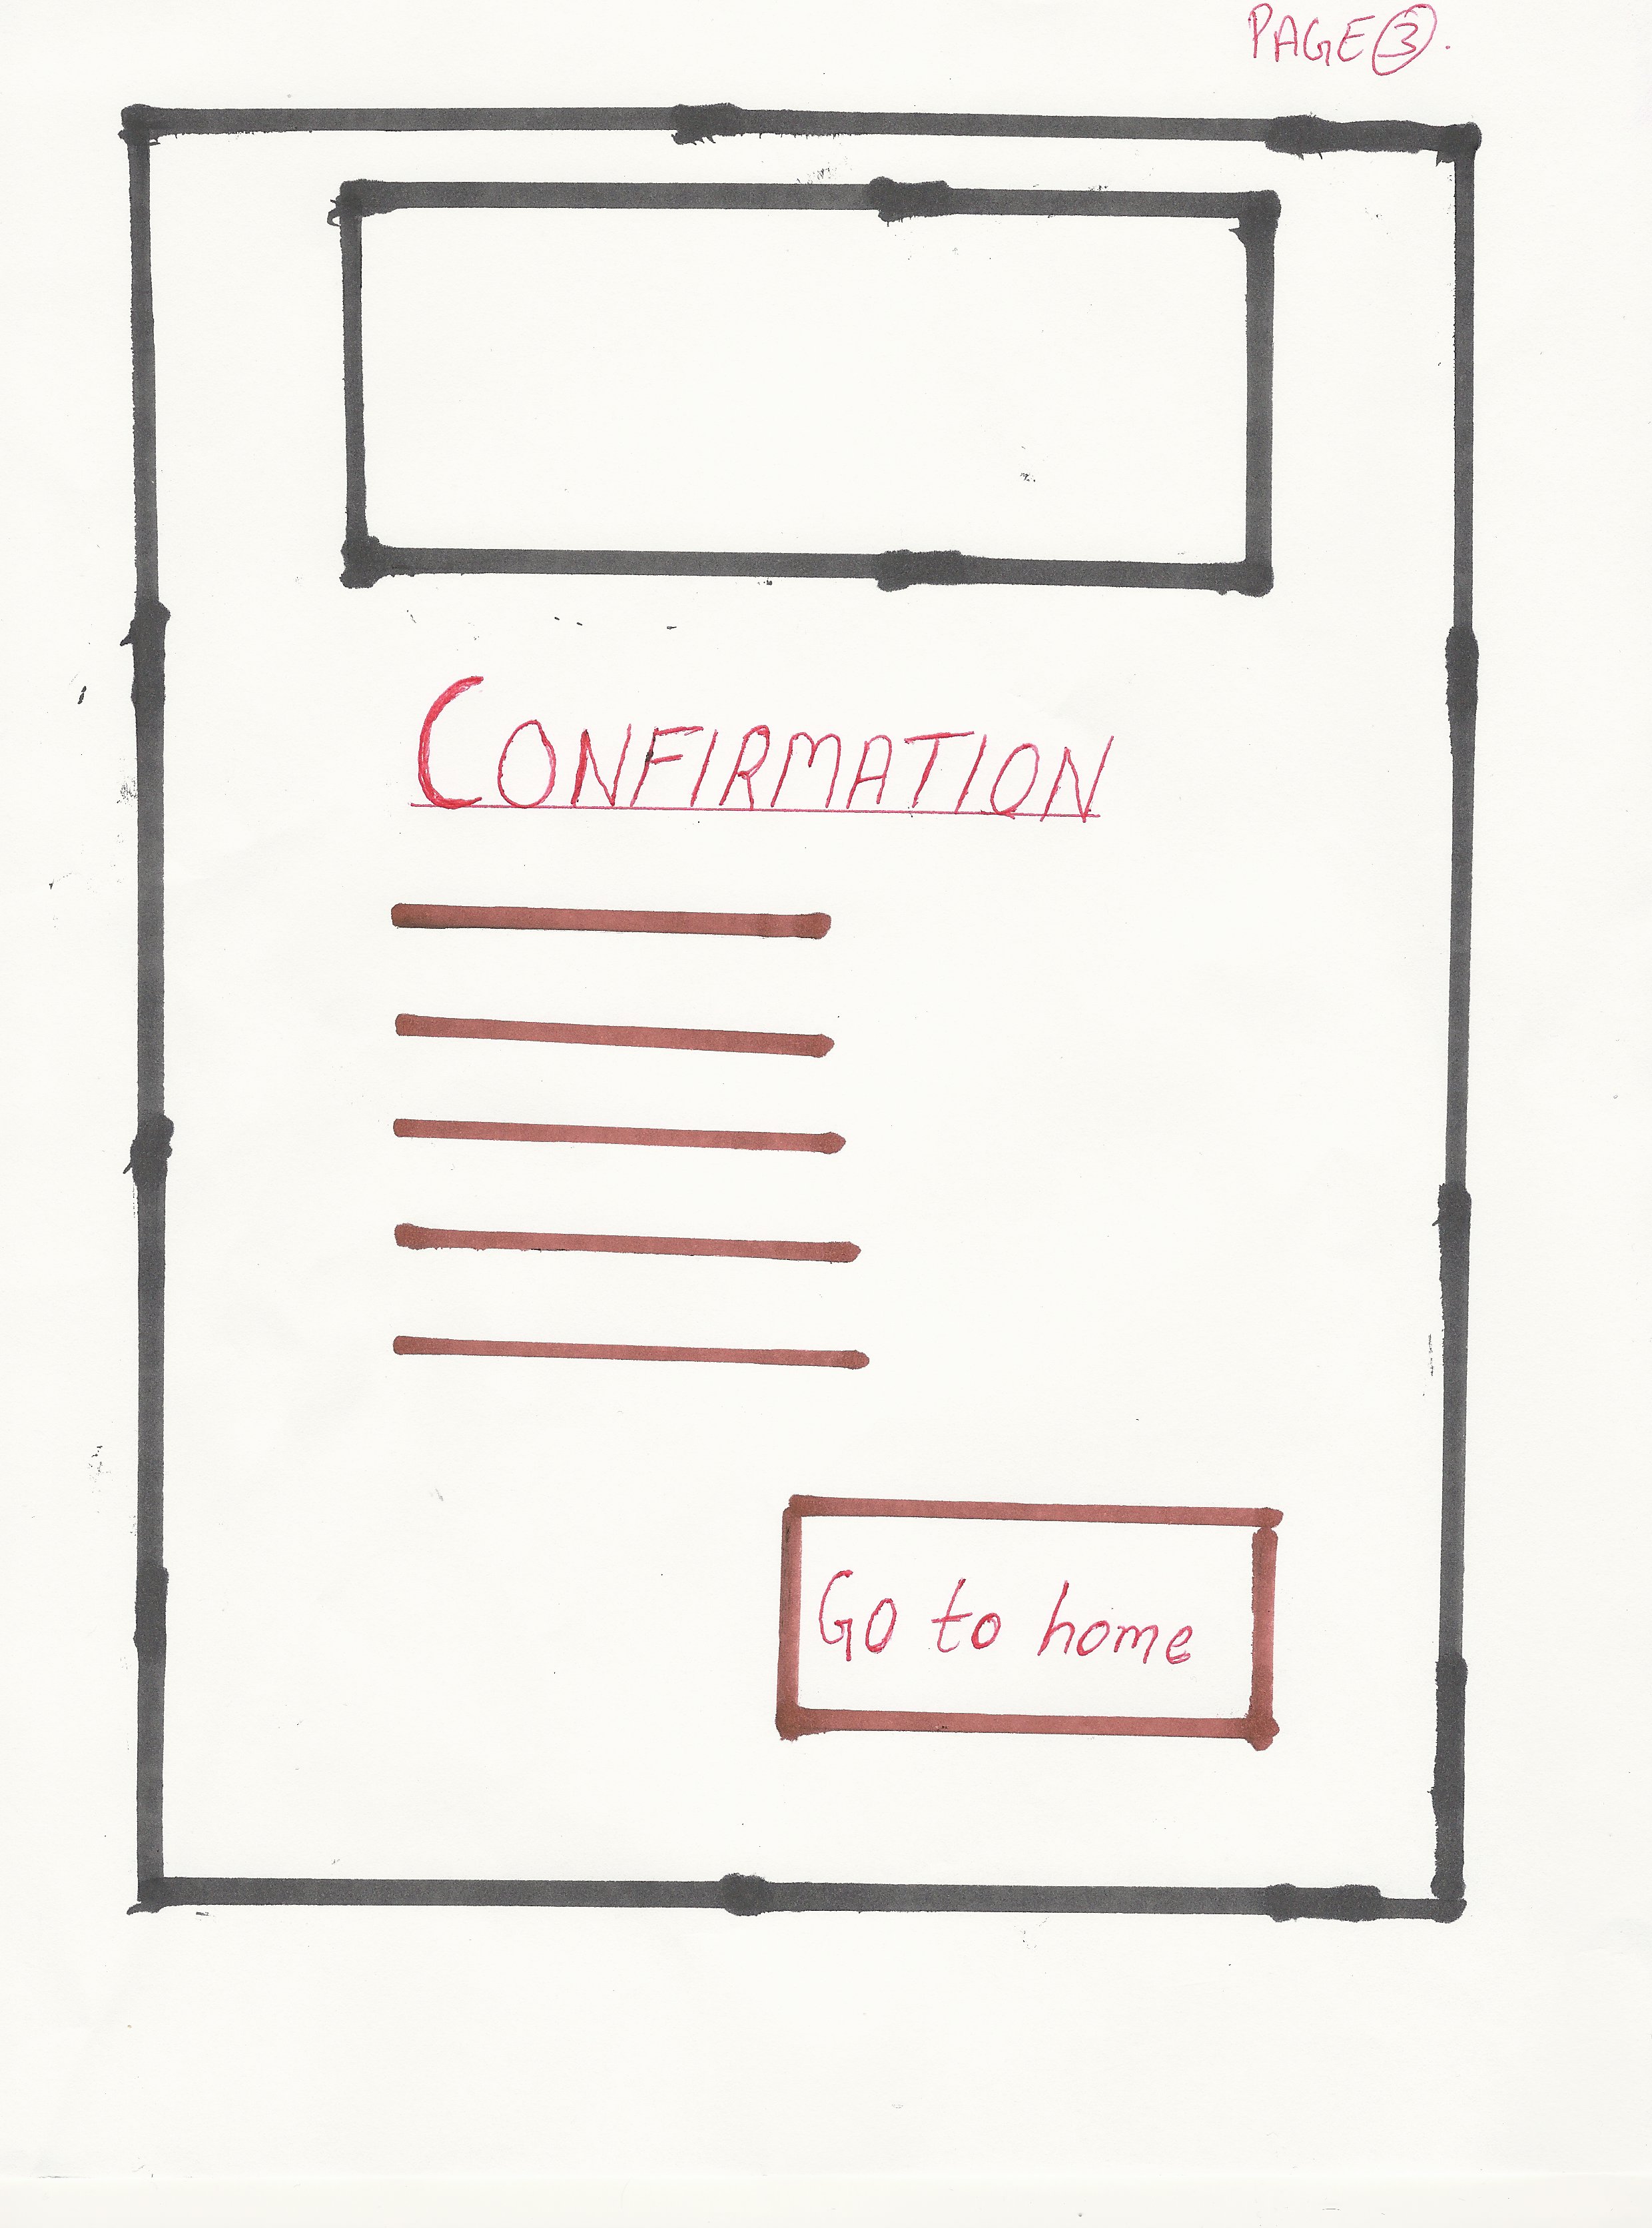 PAGE 3.
CONFIRMATION
Go to home